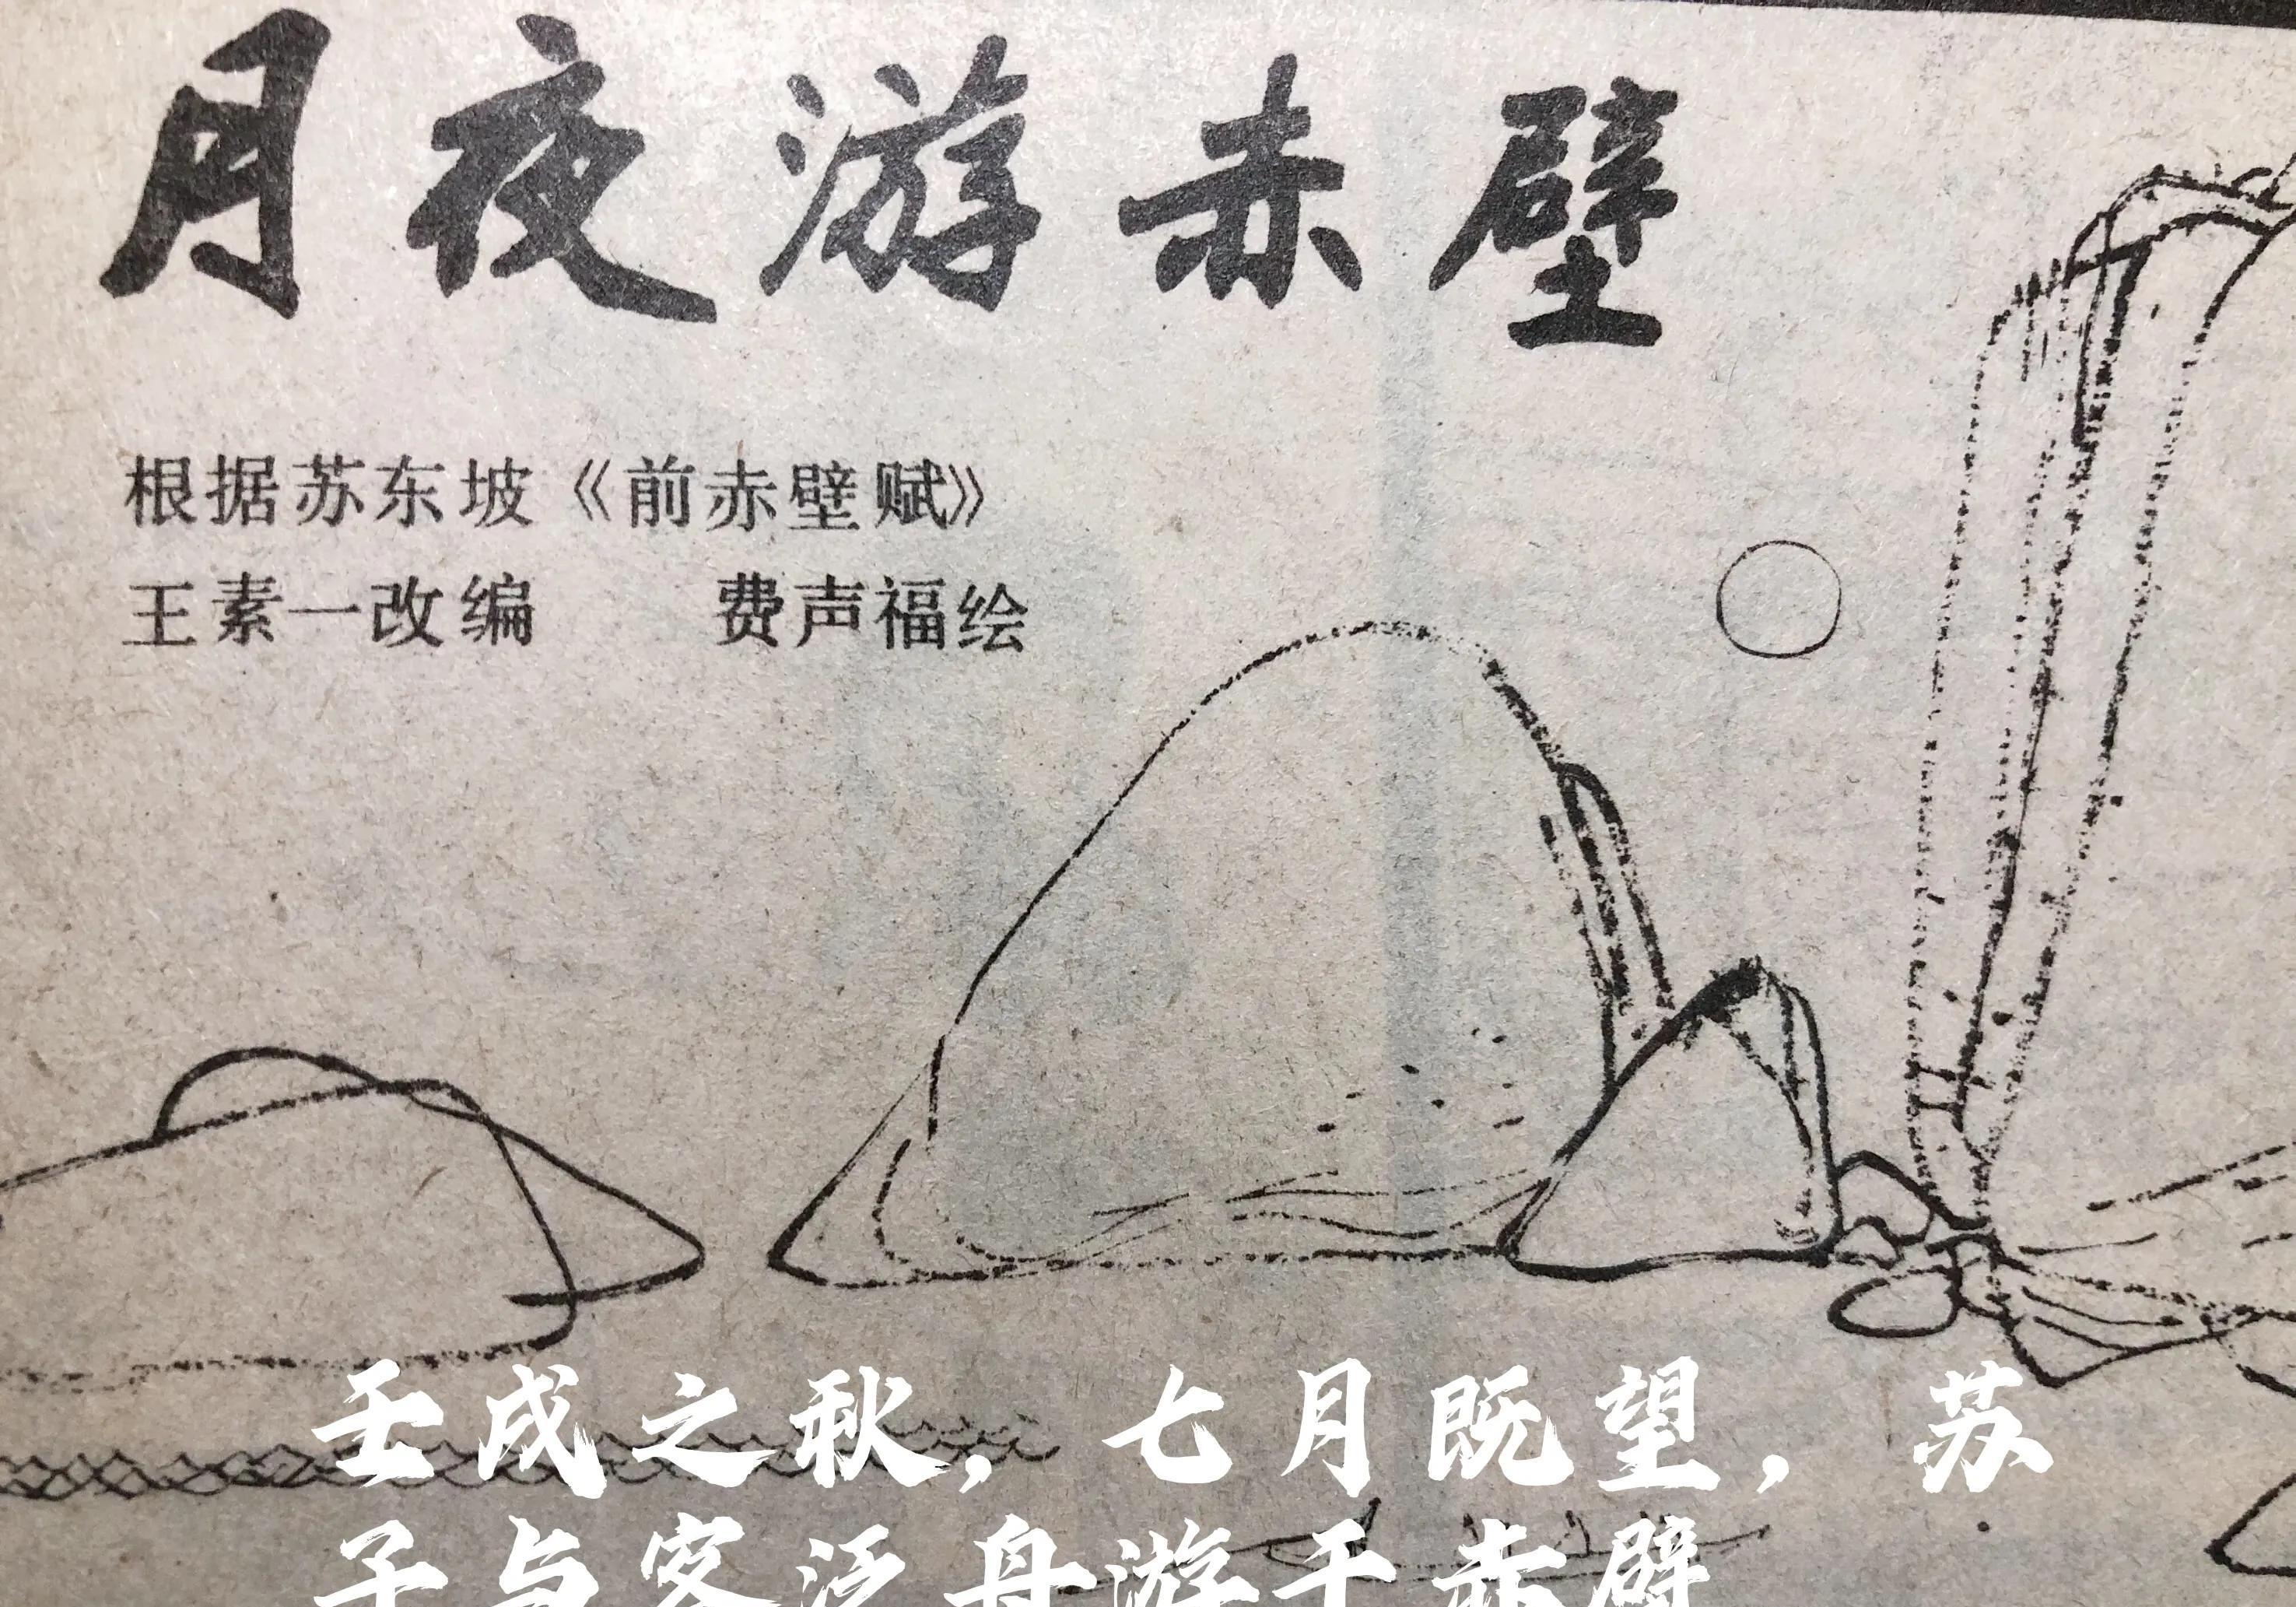 月夜游赤壁
根据苏东坡《前赤壁赋》
王素一改编 费声福绘
壬戌之秋，七月既望，苏
子与客泛舟游于赤壁